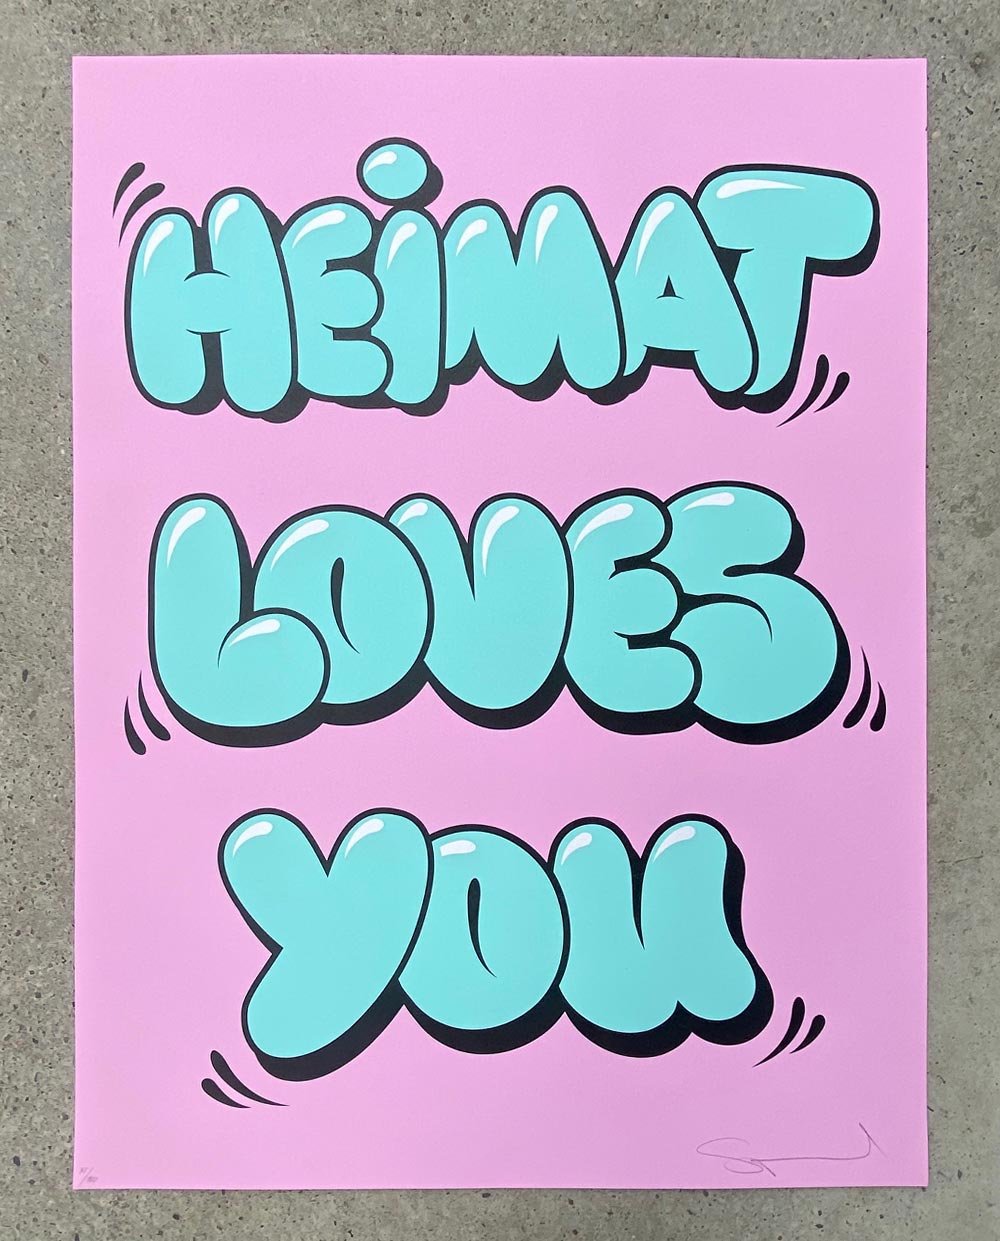 HEiMAT
LOVES
YOU